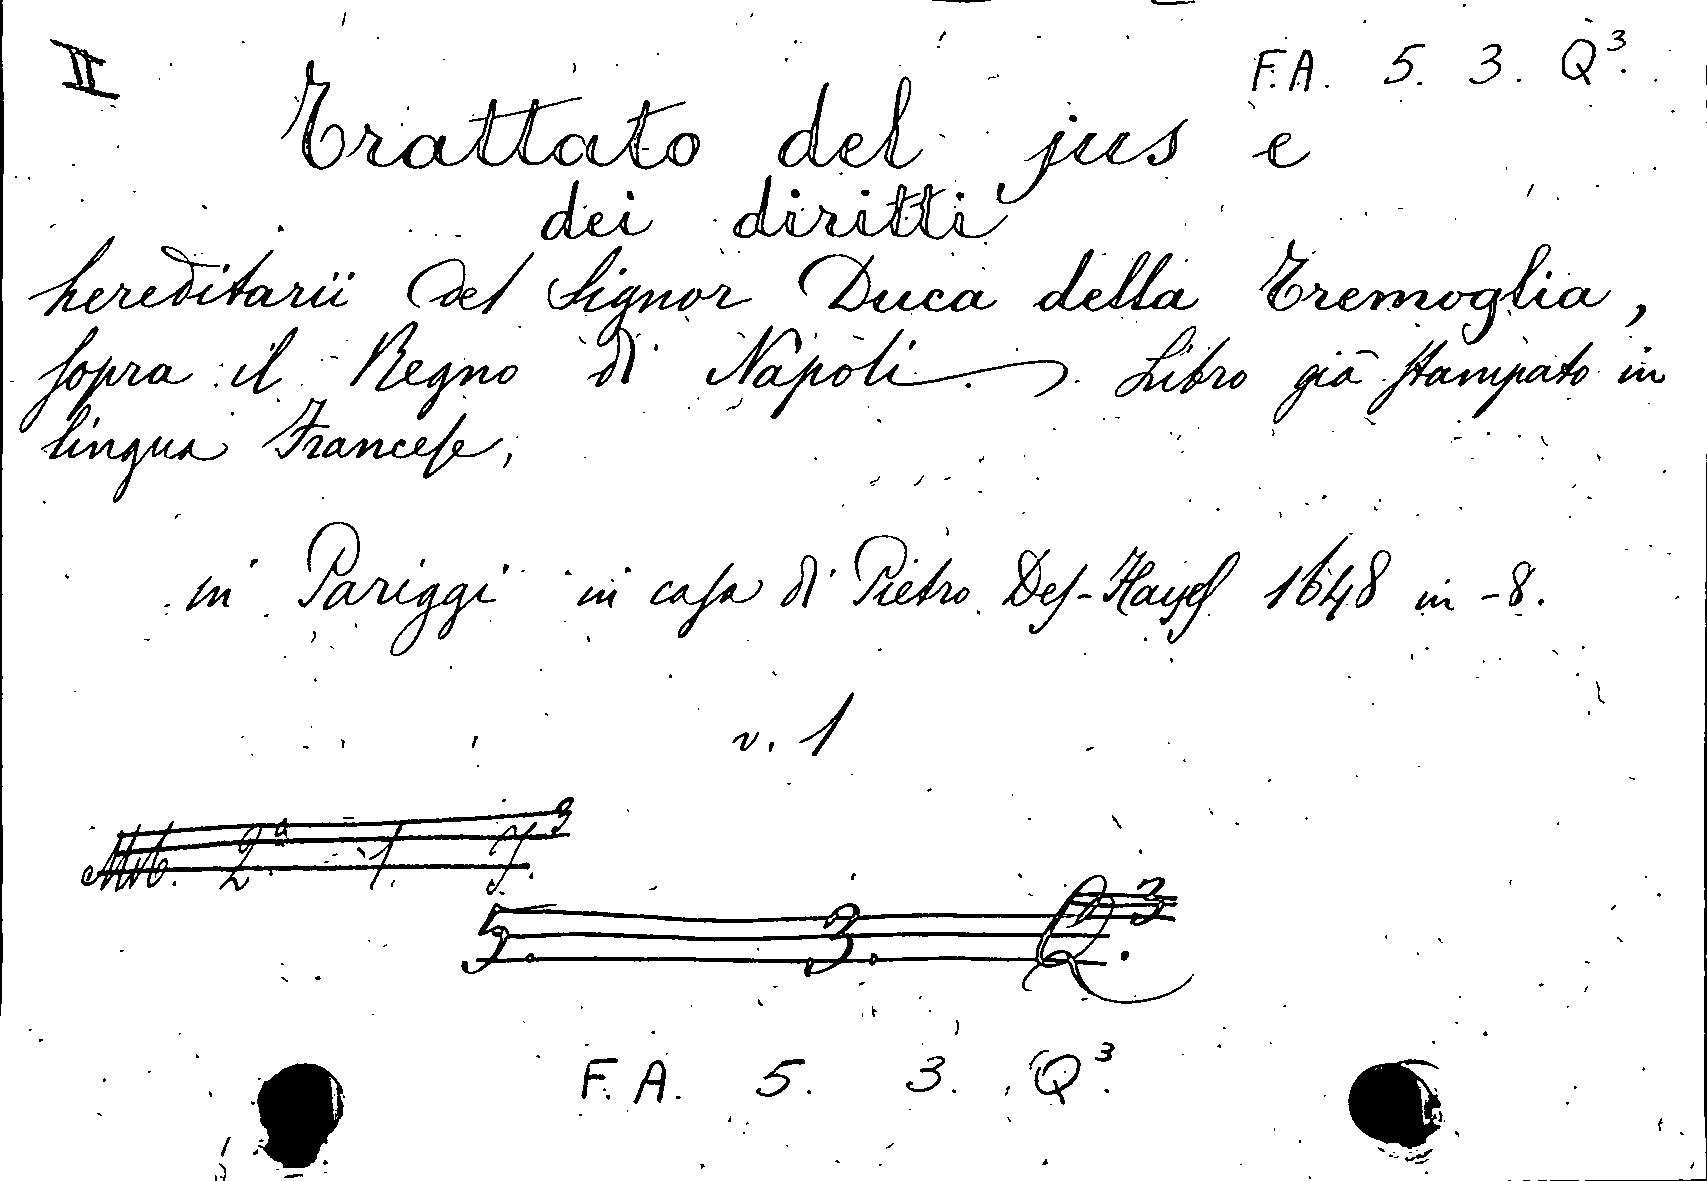 II
F.A. 5. 3. Q³.
Trattato del jus e
dei diritti
hereditarii del Signor Duca della Tremoglia,
sopra il Regno di Napoli. Libro già stampato in
lingua Francese,
in Pariggi in casa di Pietro Des-Hayes 1648 in-8.
v. 1
2ª. 1. 7³.
5. 3. Q³.
F.A. 5. 3. Q³.